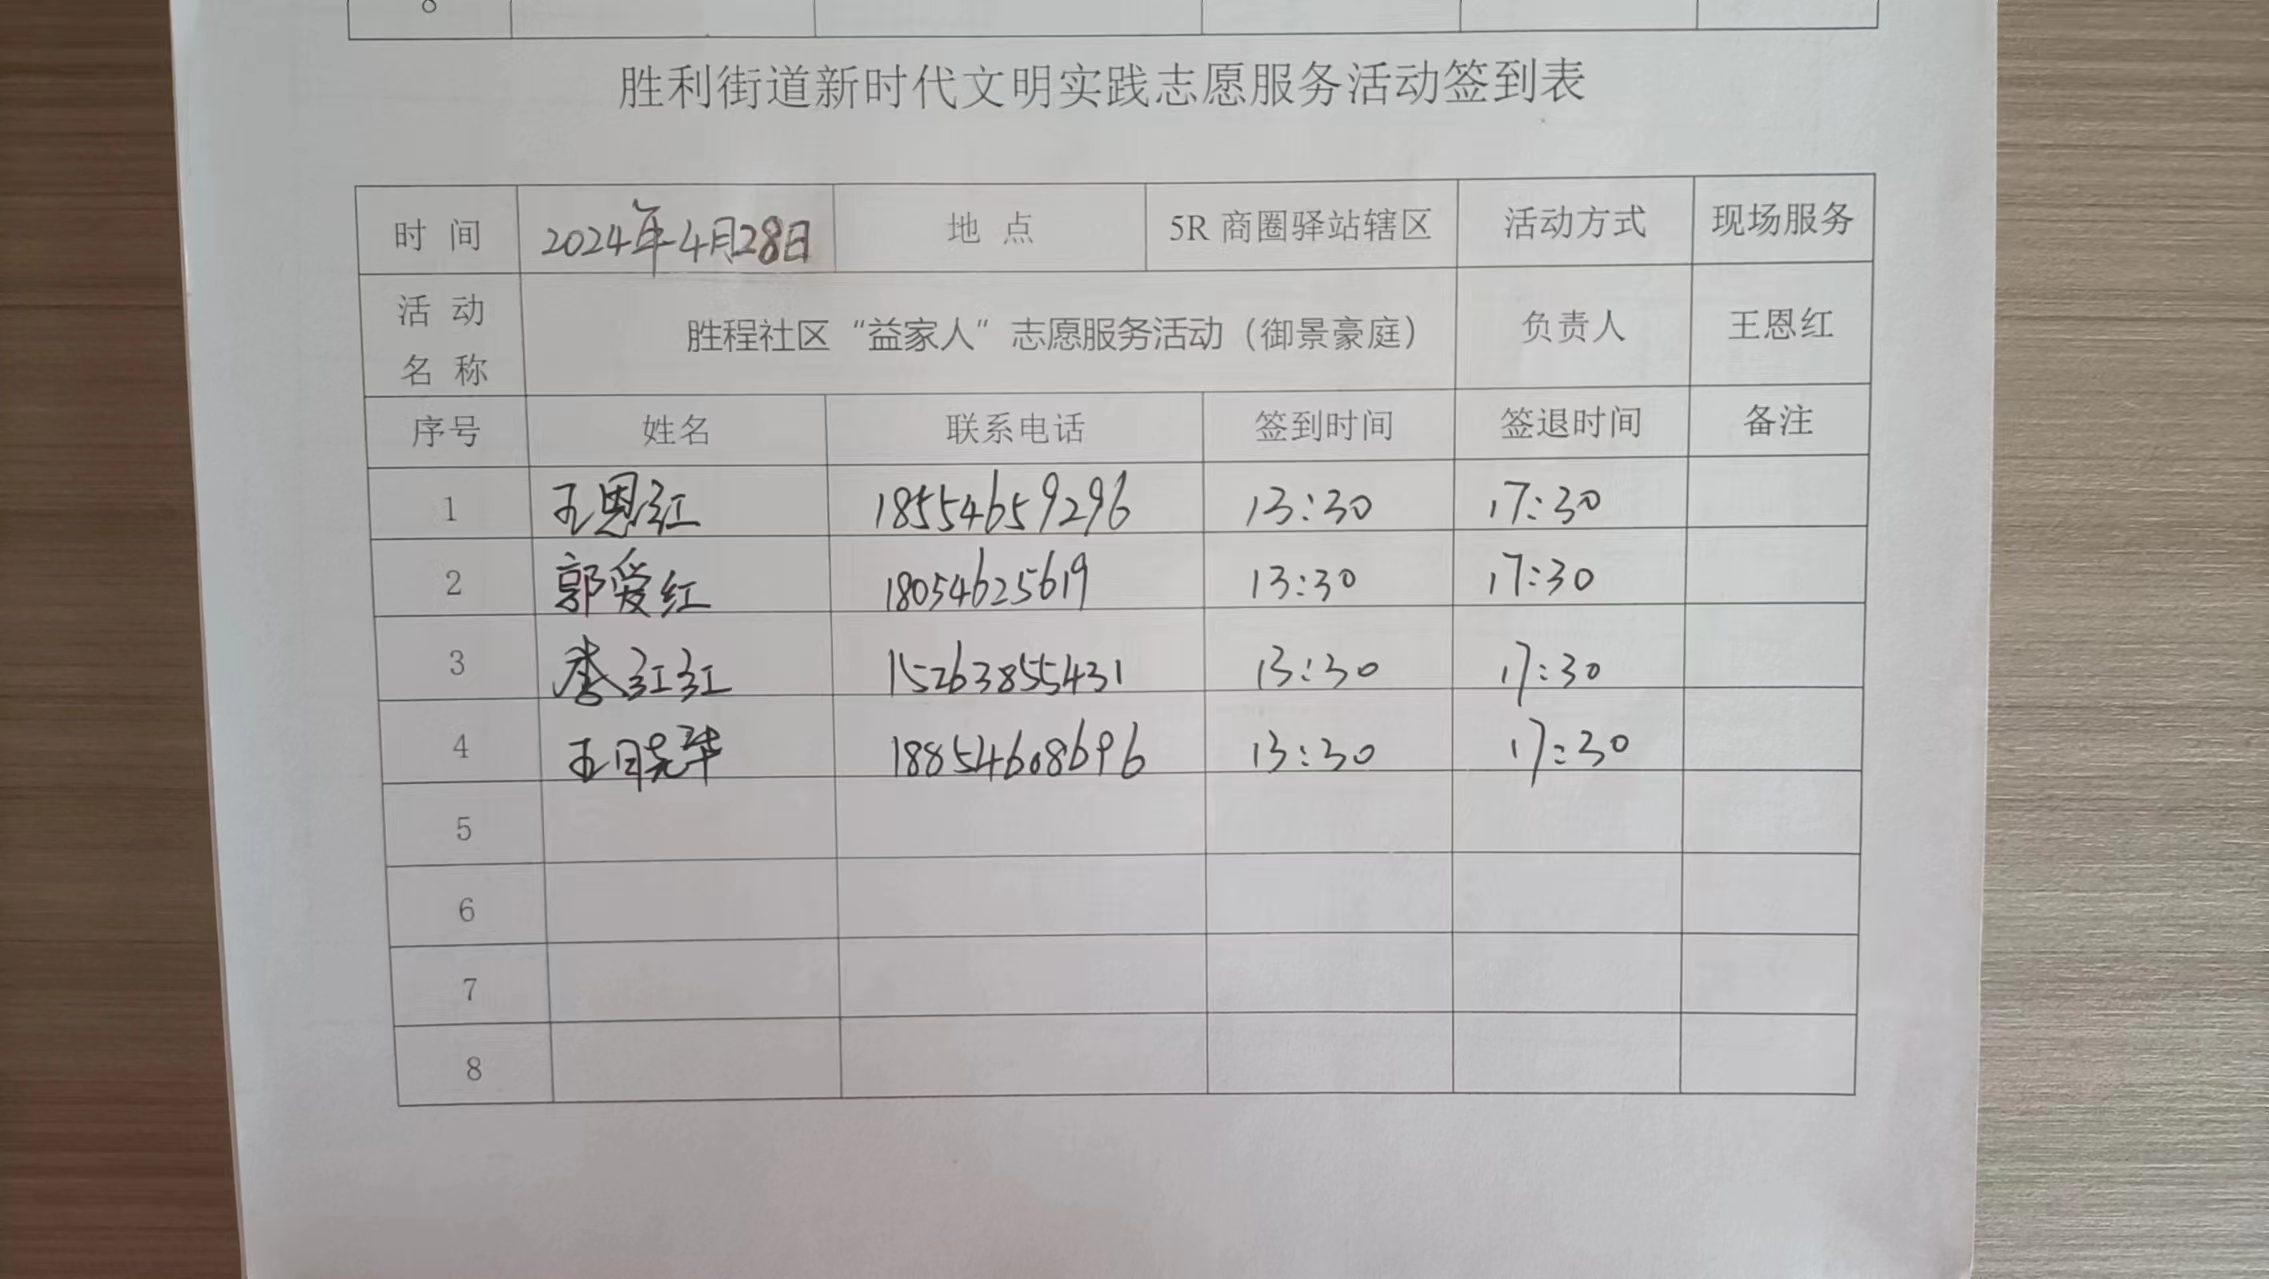 8
胜利街道新时代文明实践志愿服务活动签到表
时 间 2024年4月28日 地 点 5R 商圈驿站辖区 活动方式 现场服务
活 动 名 称 胜程社区“益家人”志愿服务活动（御景豪庭） 负责人 王恩红
序号 姓名 联系电话 签到时间 签退时间 备注
1 王恩红 18554659296 13:30 17:30
2 郭爱红 18054625619 13:30 17:30
3 李红红 15263855431 13:30 17:30
4 王晓华 18854608696 13:30 17:30
5
6
7
8